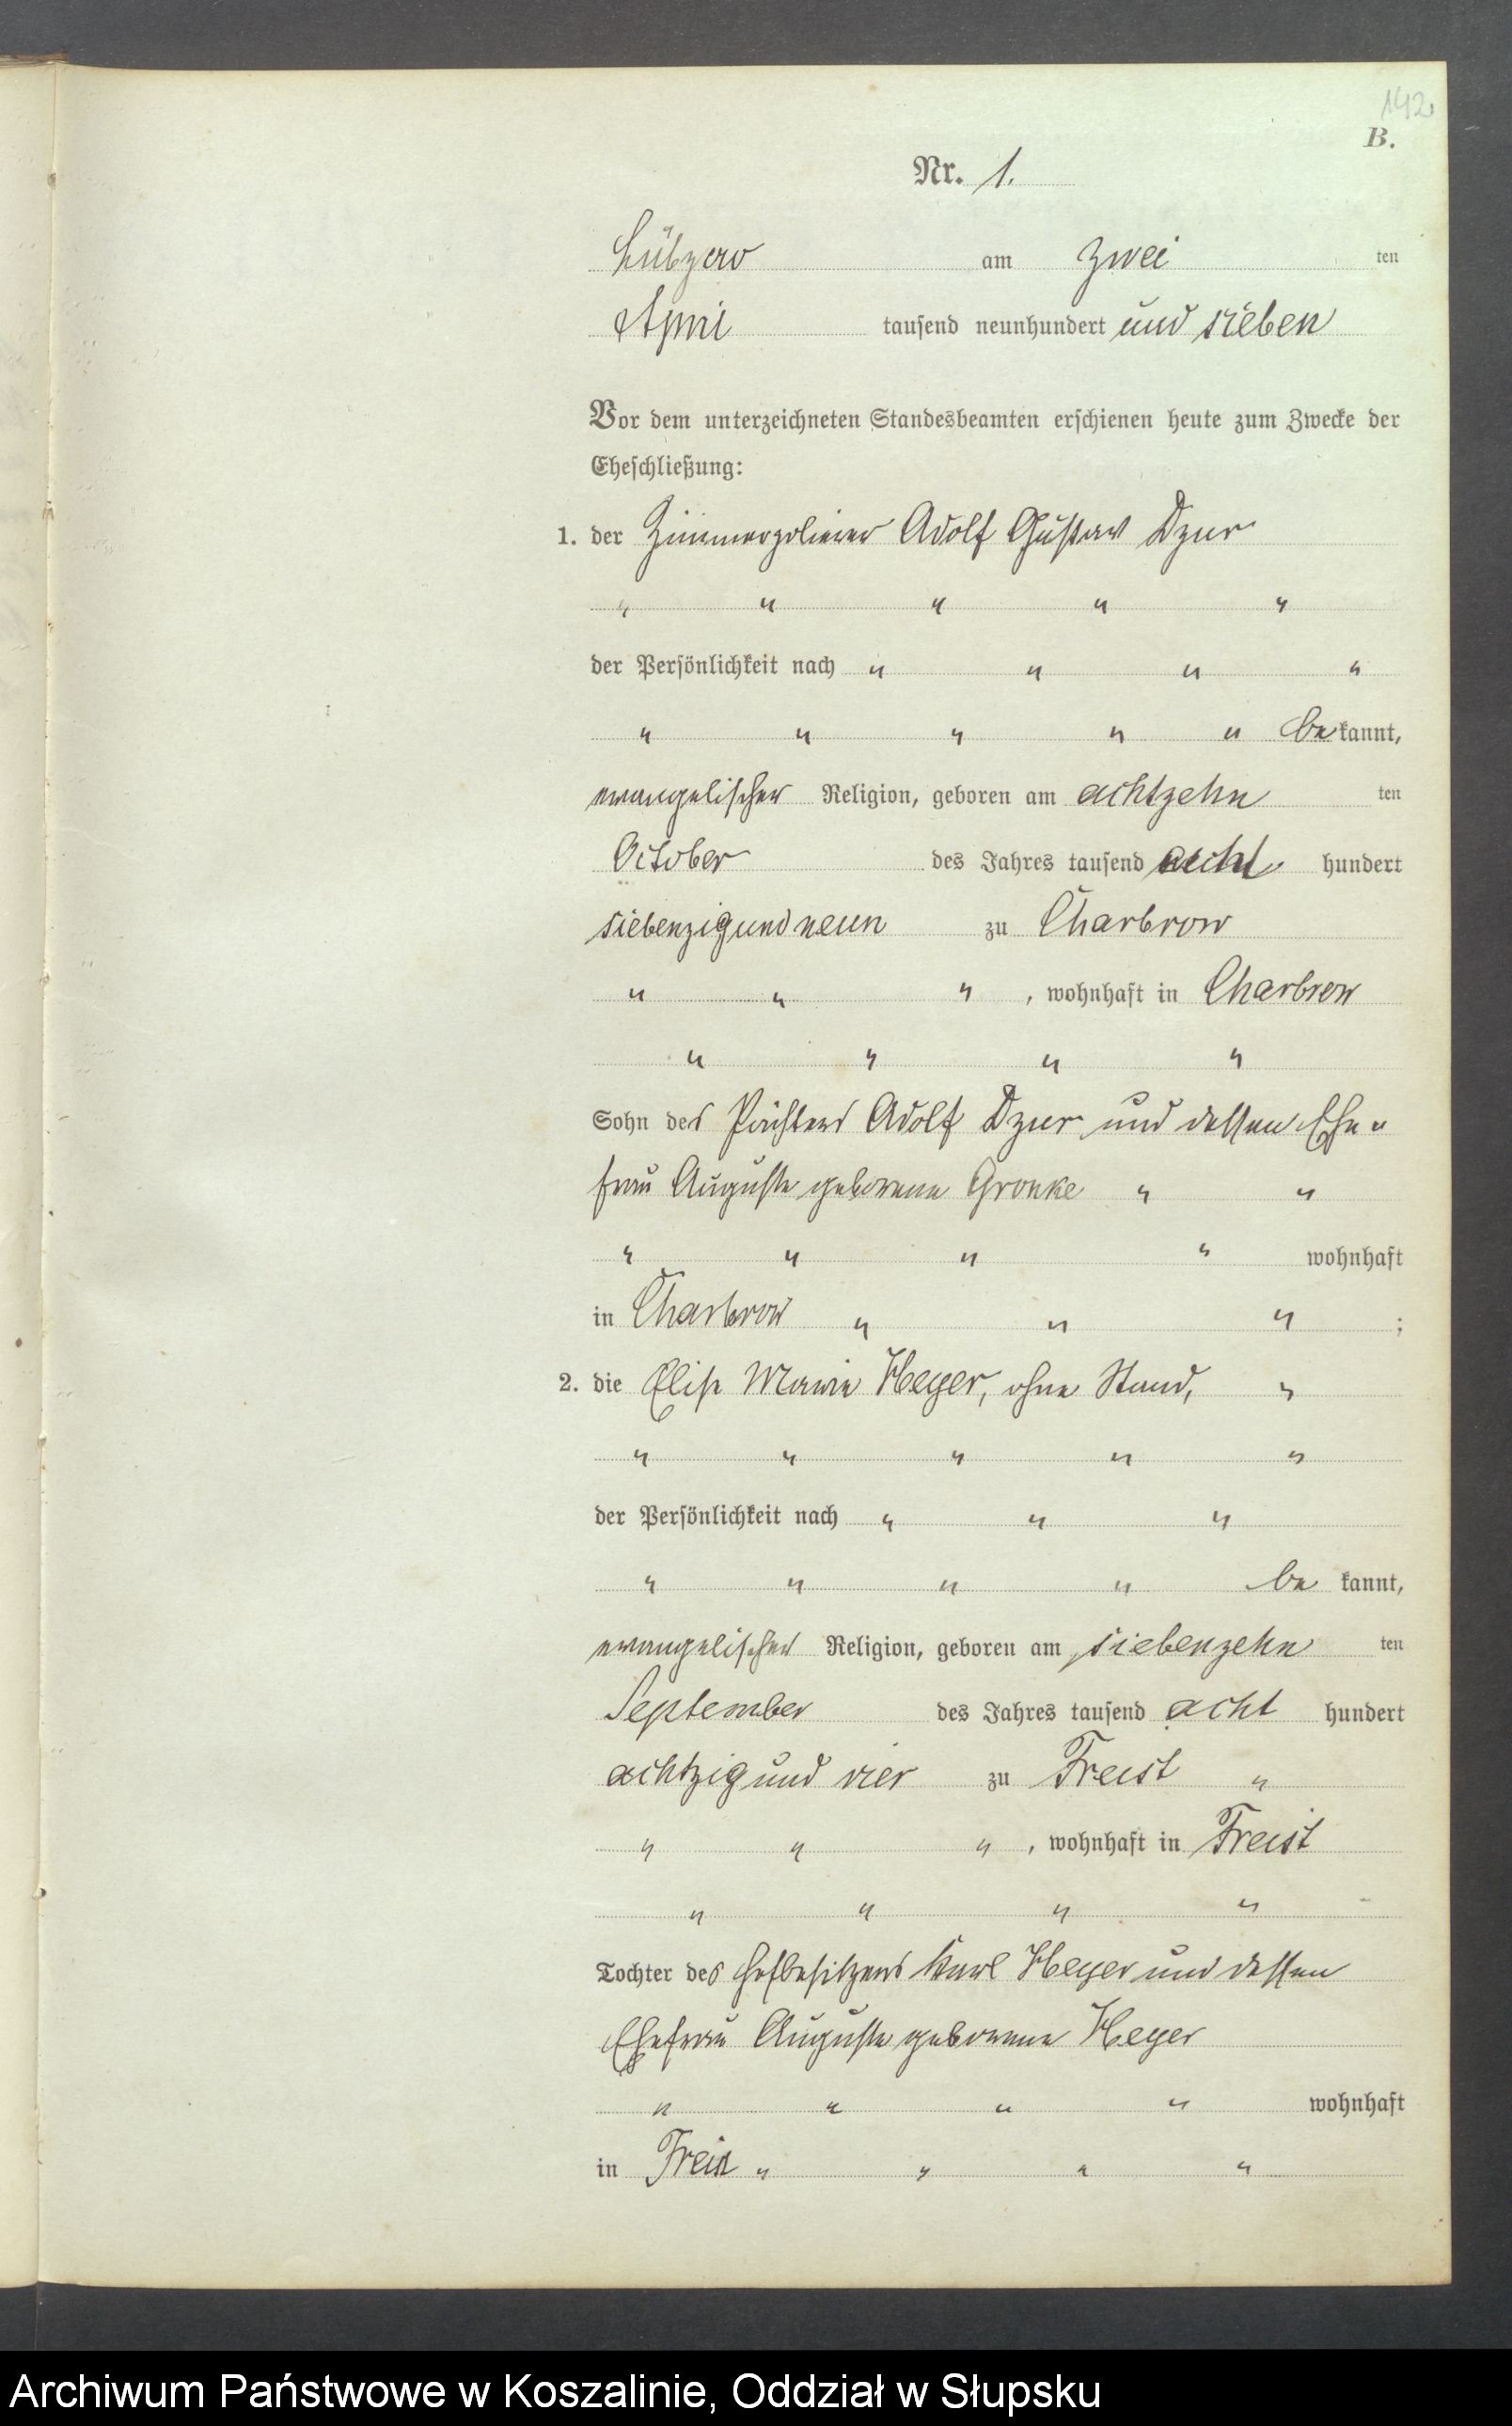 142
B.
Nr. 1.
Lübzow am zwei ten
April tausend neunhundert und sieben
Vor dem unterzeichneten Standesbeamten erschienen heute zum Zwecke der
Eheschließung:
1. der Zimmerpolierer Adolf Gustav Dzur
" " " " "
der Persönlichkeit nach " " " "
" " " " " be kannt,
evangelischer Religion, geboren am achtzehn ten
October des Jahres tausend acht hundert
siebenzig und neun zu Charbrow
" " " , wohnhaft in Charbrow
" " " "
Sohn des Pächters Adolf Dzur und dessen Ehe "
frau Auguste geborene Gronke " "
" " " " wohnhaft
in Charbrow " " " ;
2. die Elise Marie Heyer, ohne Stand, "
" " " " "
der Persönlichkeit nach " " "
" " " " be kannt,
evangelischer Religion, geboren am siebenzehn ten
September des Jahres tausend acht hundert
achtzig und vier zu Freist "
" " " , wohnhaft in Freist
" " " "
Tochter des Hofbesitzers Karl Heyer und dessen
Ehefrau Auguste geborene Heyer
" " " " wohnhaft
in Freist " " " "
Archiwum Państwowe w Koszalinie, Oddział w Słupsku